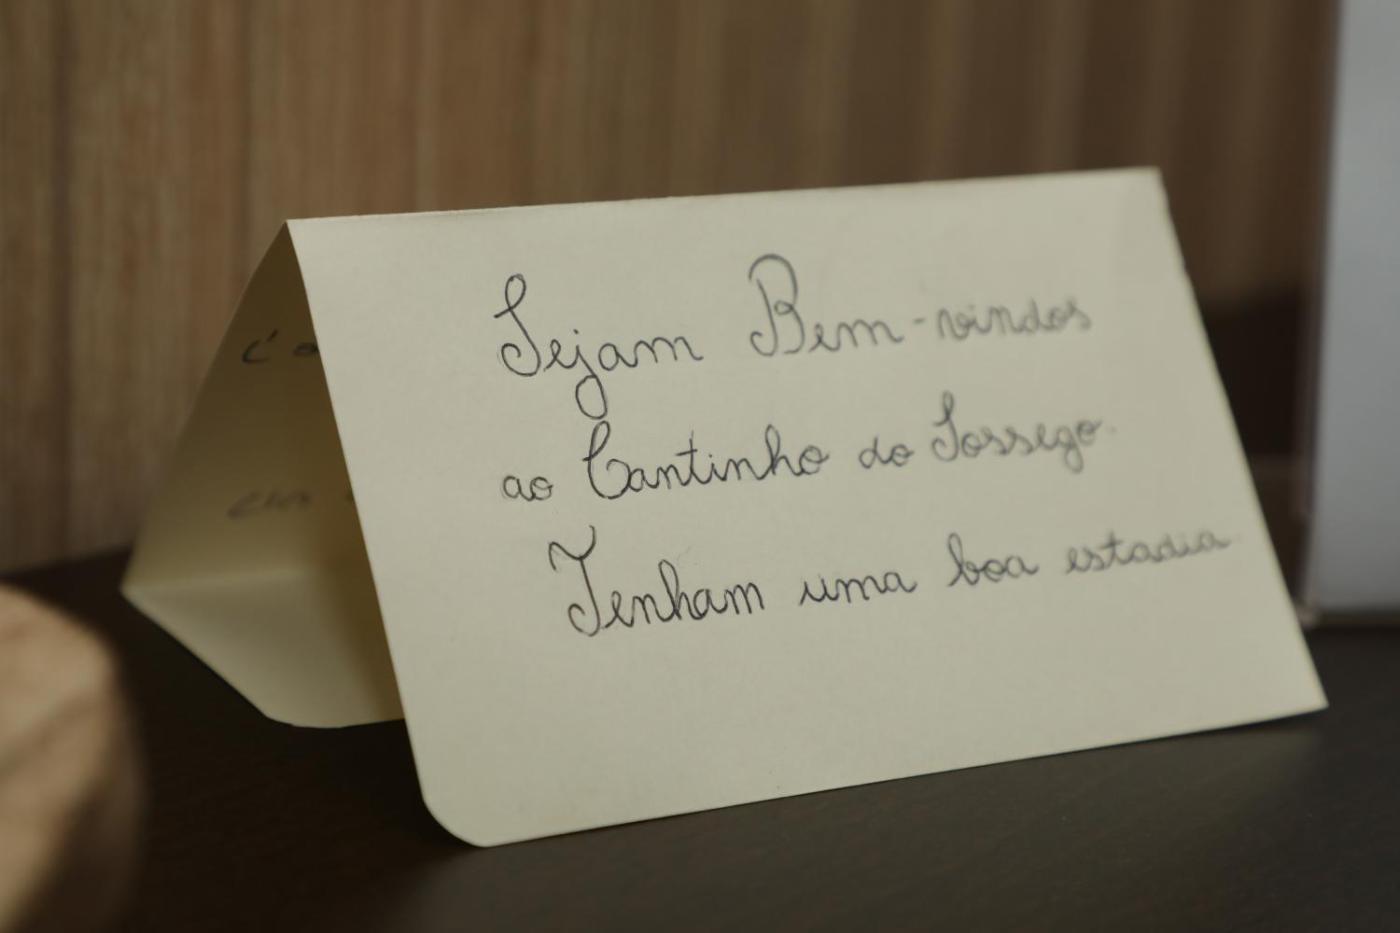 Sejam Bem-vindos
ao Cantinho do Sossego.
Tenham uma boa estadia